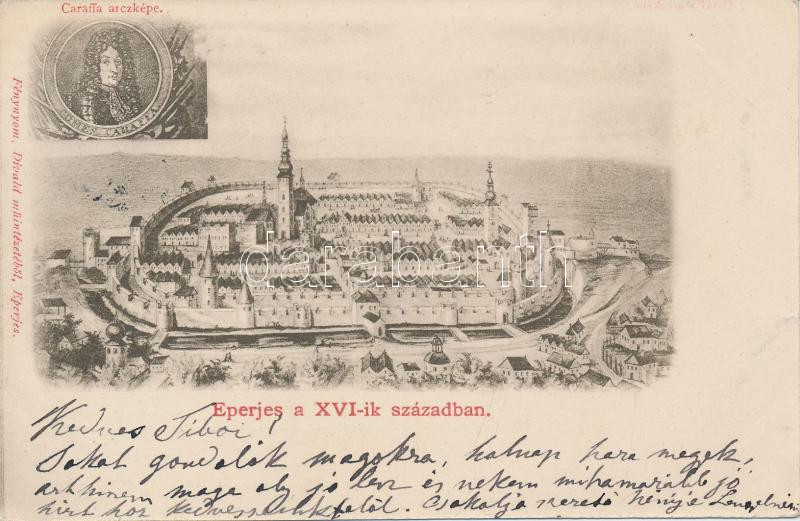 Caraffa arczképe.
COMES CARAFFA
Fénynyom. Divald műintézetéből, Eperjes.
darabanth
Eperjes a XVI-ik században.
Kedves Tibor!
Sokat gondolok magokra, holnap haza megyek,
azt hiszem maga oly jó lesz és nekem mihamarább jó
hirt hoz kedveseinkfelöl. Csokolja szerető nénje